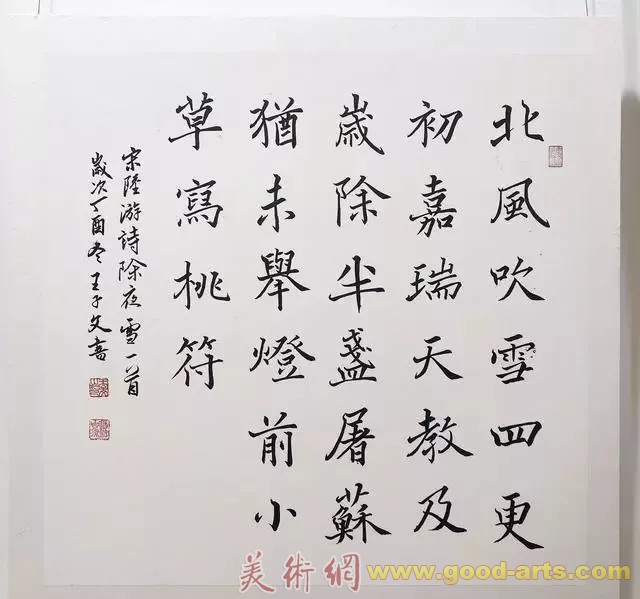 北風吹雪四更
初嘉瑞天教及
歲除半盞屠蘇
猶未舉燈前小
草寫桃符
宋陸游詩除夜雪一首
歲次丁酉冬王子文書
美術網 www.good-arts.com